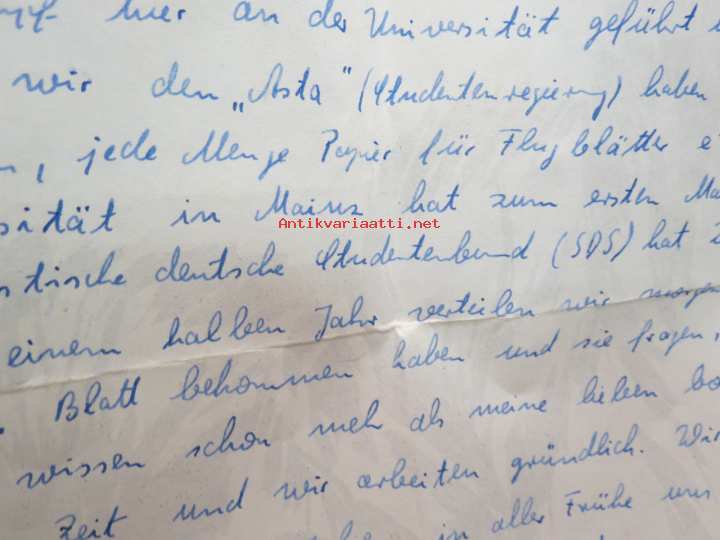 hier an der Universität geführt
wir den „Asta" (Studentenregierung) haben
, jede Menge Papier für Flugblätter
sität in Mainz hat zum ersten Ma
Antikvariaatti.net
stische deutsche Studentenbund (SDS) hat
einem halben Jahr verteilen wir morgen
Blatt bekommen haben und sie fragen,
wissen schon mehr als meine lieben
Zeit und wir arbeiten gründlich. Wir
in aller Frühe uns